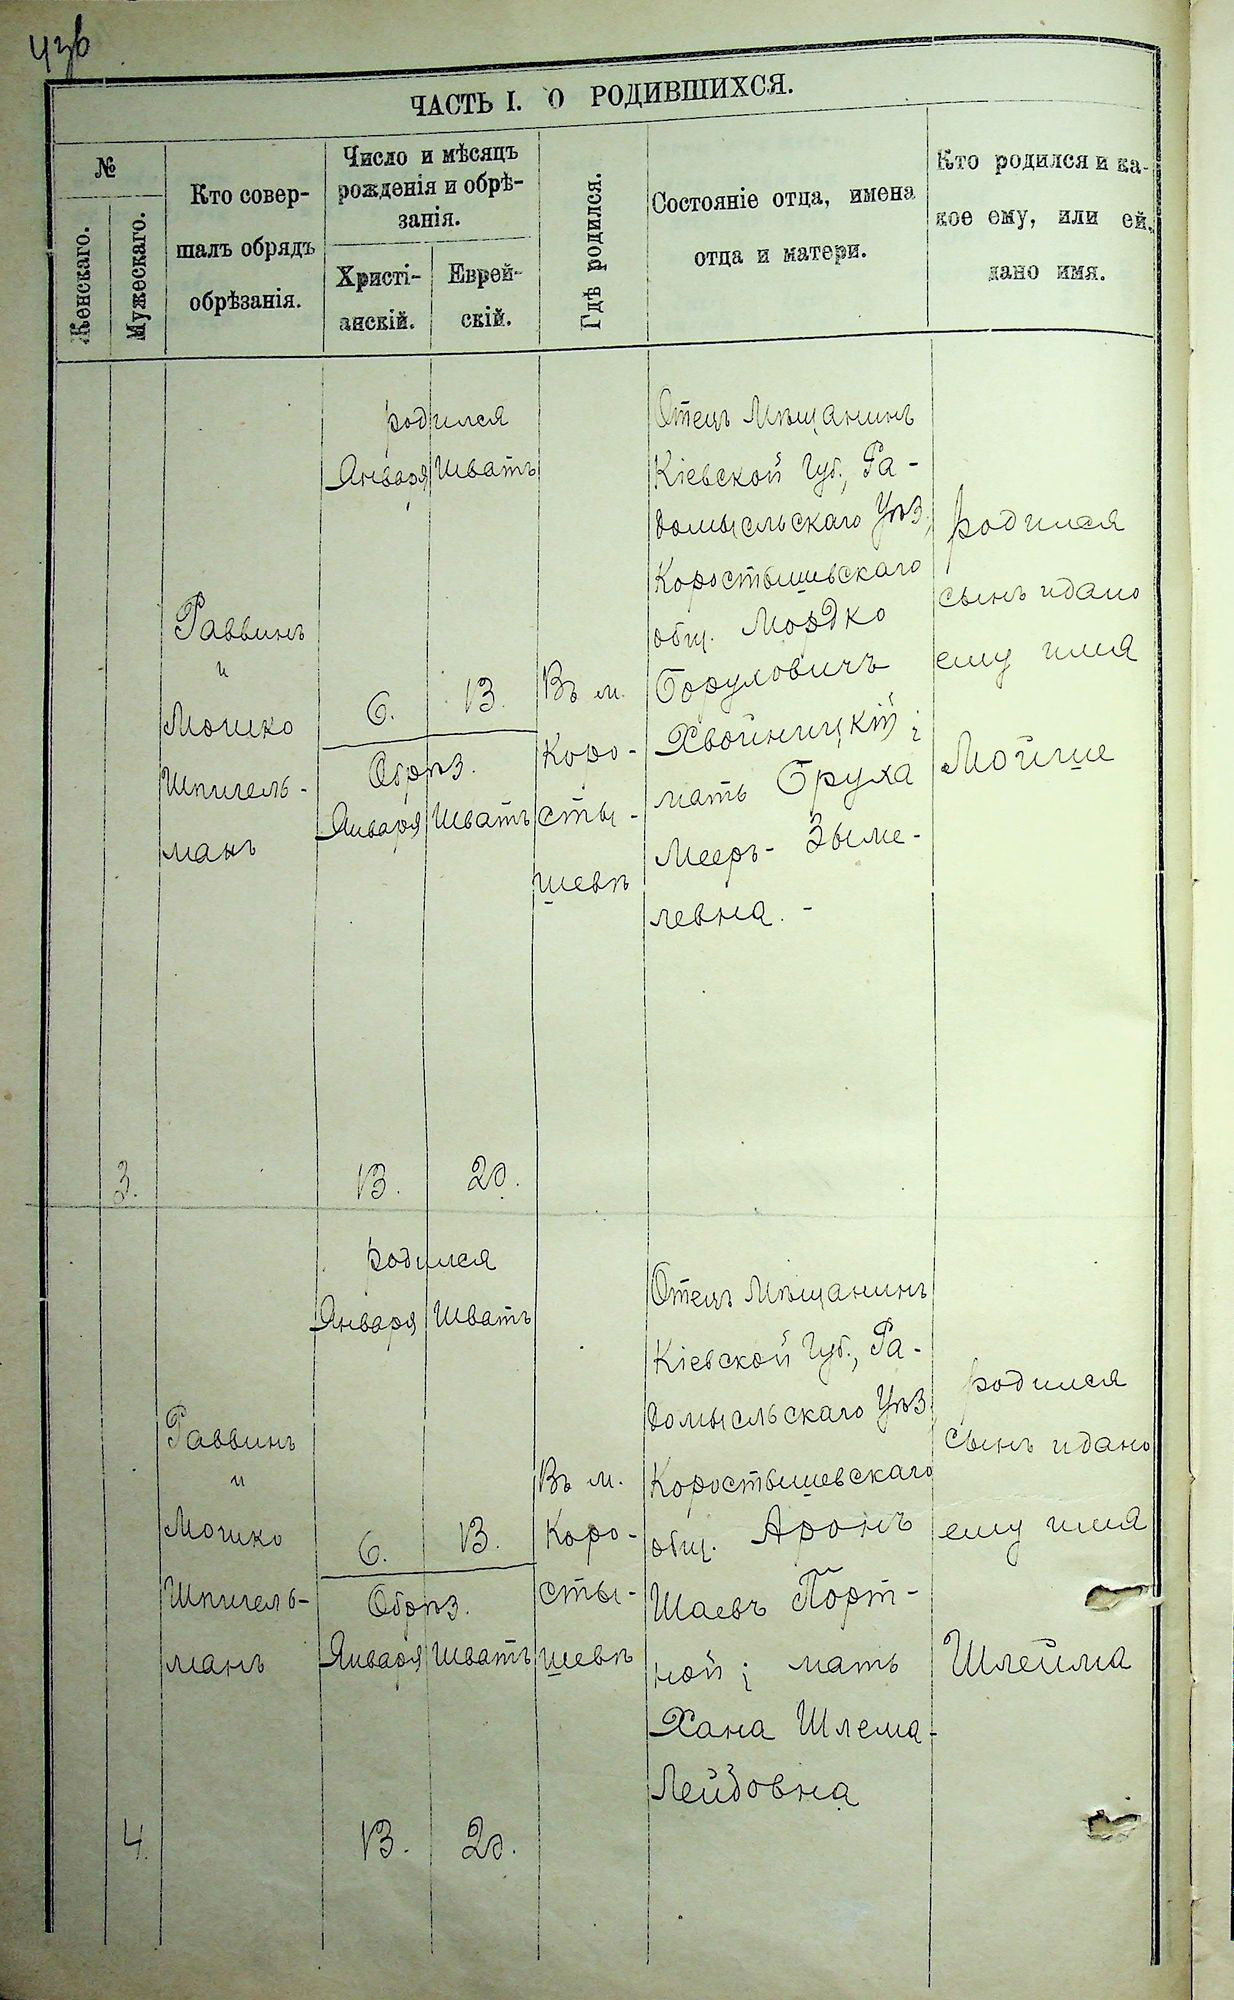 436
ЧАСТЬ I. О РОДИВШИХСЯ.
№
Женскаго.
Мужескаго.
Кто совер-
шалъ обрядъ
обрѣзанія.
Число и мѣсяцъ
рожденія и обрѣ-
занія.
Христі-
анскій.
Еврей-
скій.
Гдѣ родился.
Состояніе отца, имена
отца и матери.
Кто родился и ка-
кое ему, или ей,
дано имя.
3.
Раввинъ
и
Мошко
Шпигель-
манъ
родился
Января Шватъ
6. 13.
Обрѣз.
Января Шватъ
13. 20.
Въ м.
Коро-
сты-
шевѣ
Отецъ Мѣщанинъ
Кіевской Губ., Ра-
домысльскаго Уѣз.
Коростышевскаго
общ. Мордко
Боруховичъ
Хвойницкій;
мать Бруха
Мееръ- Зыме-
левна. -
родился
сынъ и дано
ему имя
Мойше
4.
Раввинъ
и
Мошко
Шпигель-
манъ
родился
Января Шватъ
6. 13.
Обрѣз.
Января Шватъ
13. 20.
Въ м.
Коро-
сты-
шевѣ
Отецъ Мѣщанинъ
Кіевской Губ., Ра-
домысльскаго Уѣз.
Коростышевскаго
общ. Аронъ
Шаевъ Порт-
ной; мать
Хана Шлема-
Лейдовна
родился
сынъ и дано
ему имя
Шлейма